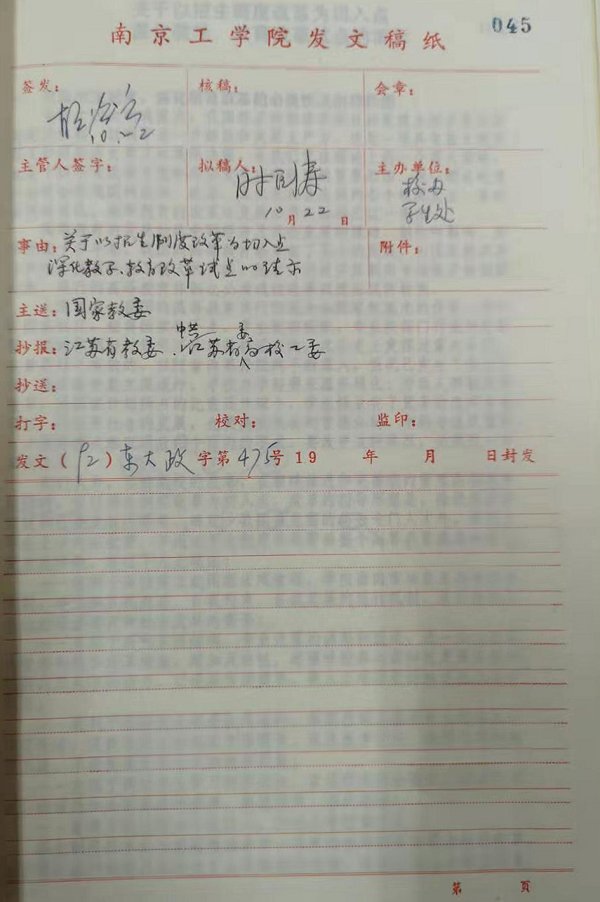 045
南京工学院发文稿纸
签发： 核稿： 会章：
10.22
主管人签字： 拟稿人： 主办单位：
校办
学生处
10月22日
事由：关于以招生制度改革为切入点 附件：
深化教学、教育改革试点的请示
主送：国家教委
抄报：江苏省教委、中共江苏省委高校工委
抄送：
打字： 校对： 监印：
发文（92）东大政字第475号 19 年 月 日封发
第 页